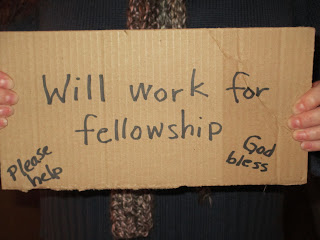 Will work for
fellowship
Please
help
God
bless